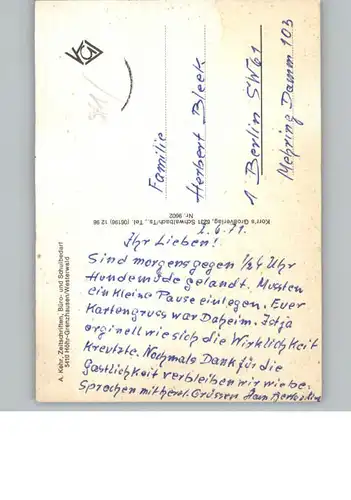 Familie
Herbert Bleek
1 Berlin SW 61
Mehring Damm 103
Korr's Großverlag, 6231 Schwalbach/Ts., Tel. (06196) 12 98
Nr. 9602
A. Kehr, Zeitschriften, Büro- und Schulbedarf
5410 Höhr-Grenzhausen/Westerwald
2.6.71.
Ihr Lieben!
Sind morgens gegen 1/24 Uhr
Hundemüde gelandt. Mussten
ein kleine Pause einlegen. Euer
Kartengruss war Daheim. Ist ja
orginell wie sich die Wirklichkeit
kreutzte. Nochmals Dank für die
Gastlichkeit verbleiben wir wie be-
Sprochen mit herzl. Grüssen